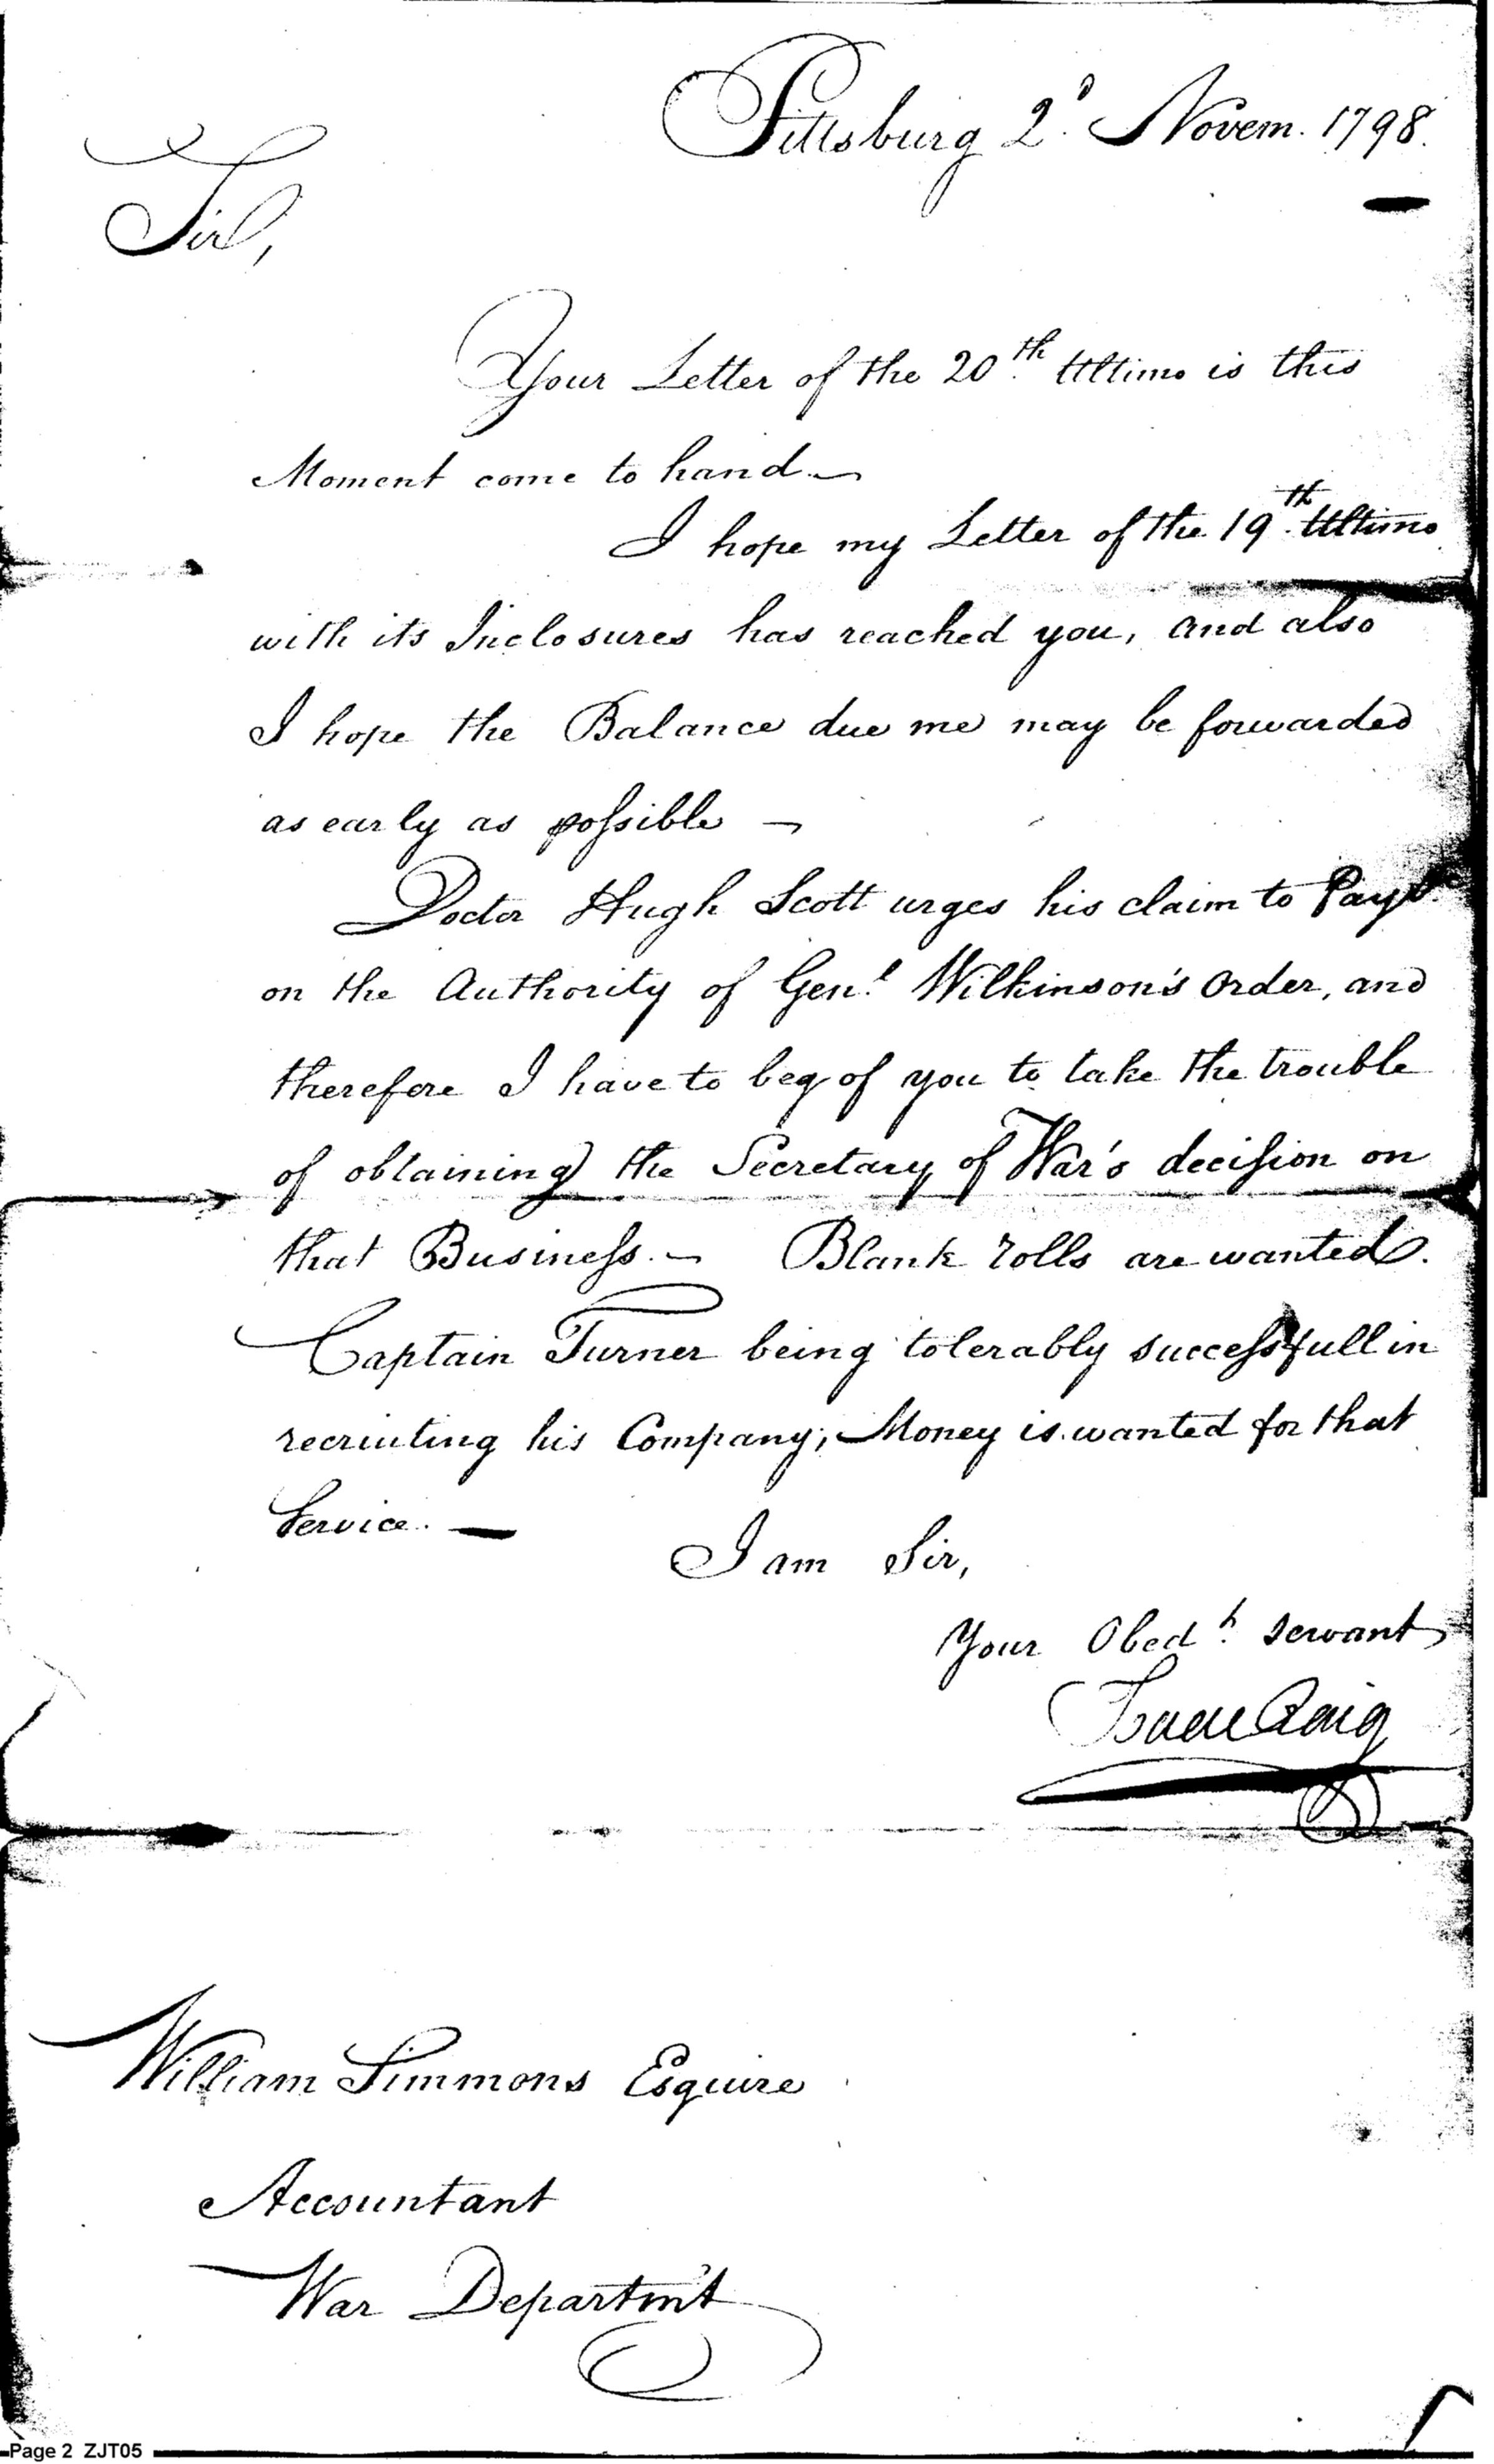 Pittsburg 2d. Novem. 1798.
Sir,
Your Letter of the 20th. Ultimo is this
Moment come to hand. —
I hope my Letter of the 19th. Ultimo
with its Inclosures has reached you, and also
I hope the Balance due me may be forwarded
as early as poſsible —
Doctor Hugh Scott urges his claim to Payt.
on the Authority of Genl. Wilkinson's Order, and
therefore I have to beg of you to take the trouble
of obtaining the Secretary of War's deciſion on
that Busineſs. — Blank rolls are wanted.
Captain Turner being tolerably succeſsfull in
recruiting his Company; Money is wanted for that
Service. —
I am Sir,
Your Obedt. servant
Isaac Craig
William Simmons Esquire
Accountant
War Departm't
Page 2 ZJT05